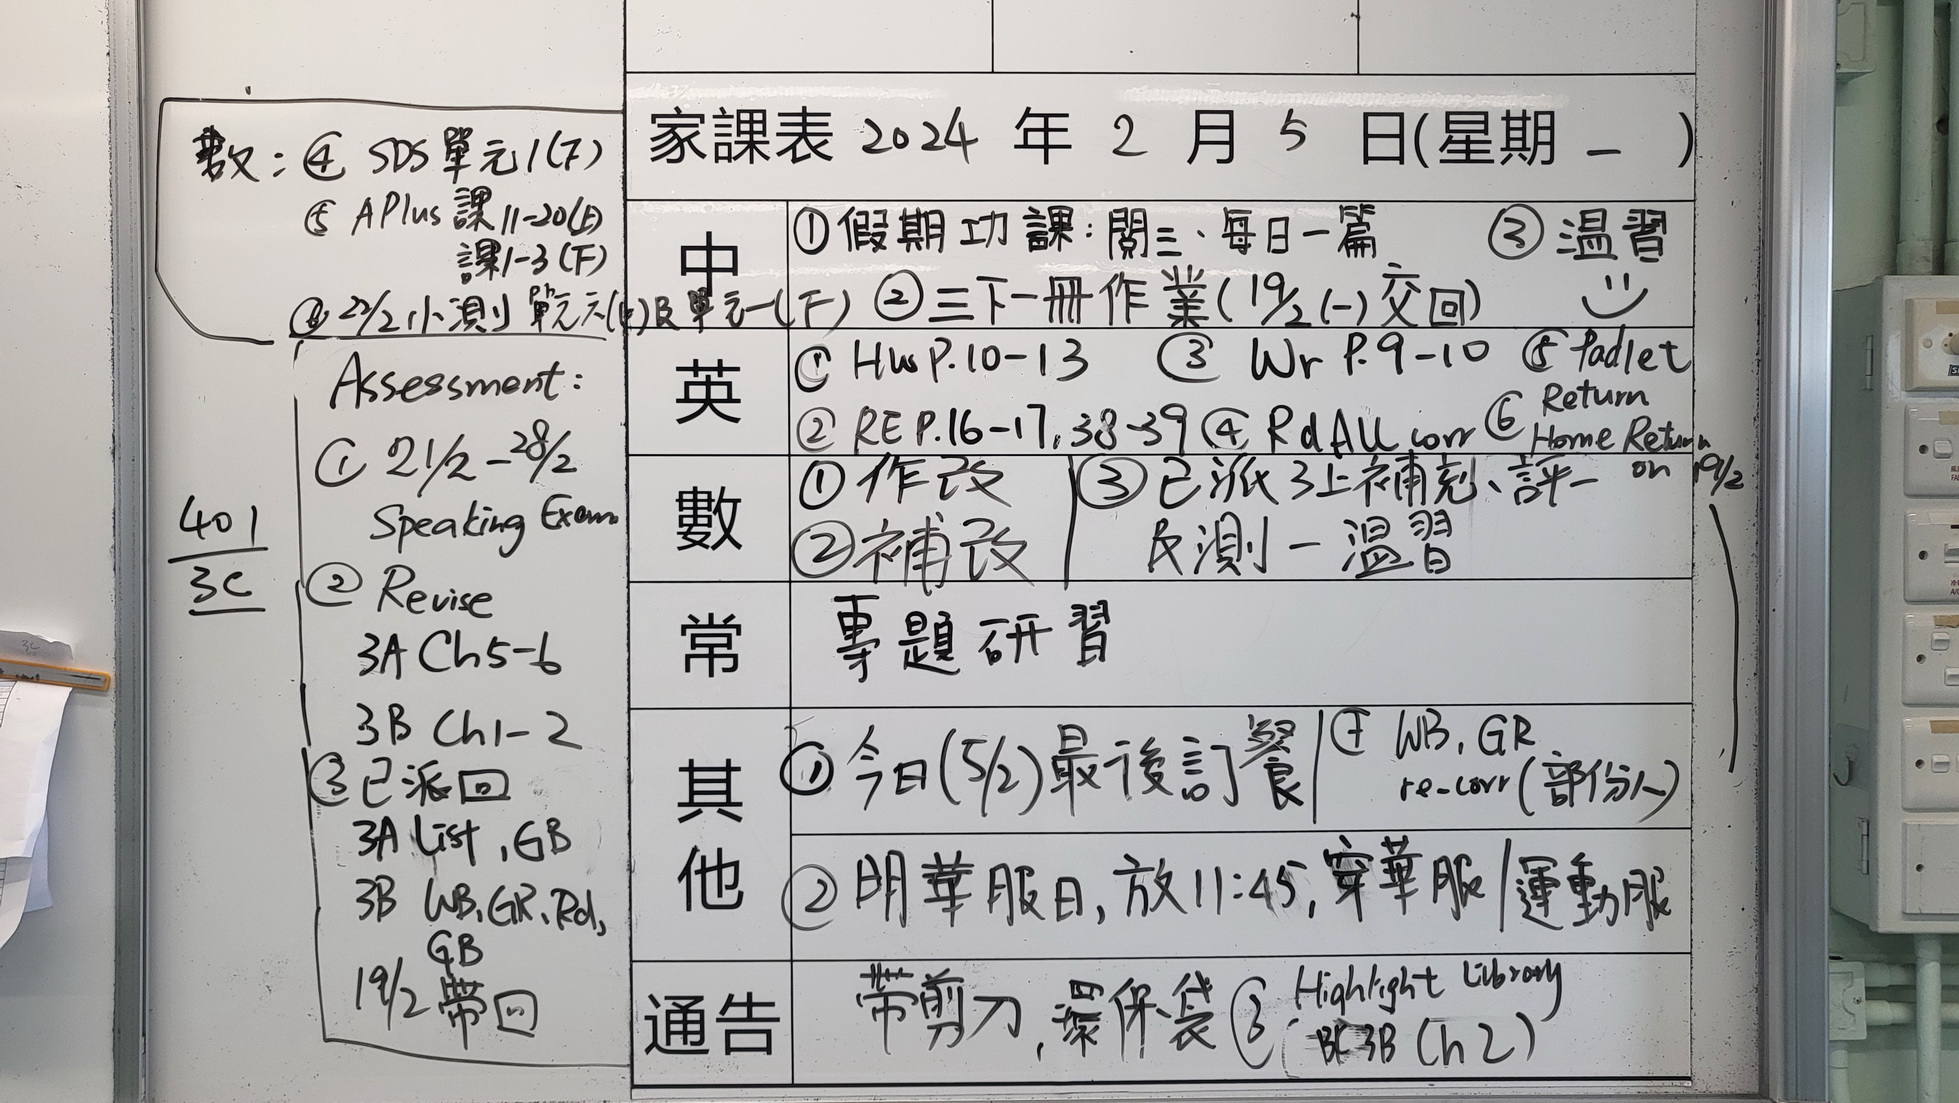 家課表 2024 年 2 月 5 日(星期 一 )
中
①假期功課:閱三、每日一篇 ③温習
②三下一冊作業(19/2(一)交回)
英
① HW P.10-13 ③ Wr P.9-10 ⑤ Padlet
② RE P.16-17, 38-39 ④ Rd All corr ⑥ Return Home Return on 19/2
數
①作改 ③已派3上補充、評一
②補改 及測一温習
常
專題研習
其他
①今日(5/2)最後訂餐 ④ WB, GR
re-corr (部份人)
②明華服日, 放11:45, 穿華服/運動服
通告
帶剪刀, 環保袋 ③ Highlight Library
BK 3B (Ch 2)
數: ④ SDS 單元1(下)
⑤ APlus 課11-20(上)
課1-3(下)
⑥ 22/2小測 單元六(上)及單元一(下)
Assessment:
① 21/2-28/2
Speaking Exam
② Revise
3A Ch5-6
3B Ch1-2
③已派回
3A List, GB
3B WB, GR, Rd,
GB
19/2 帶回
401
3C